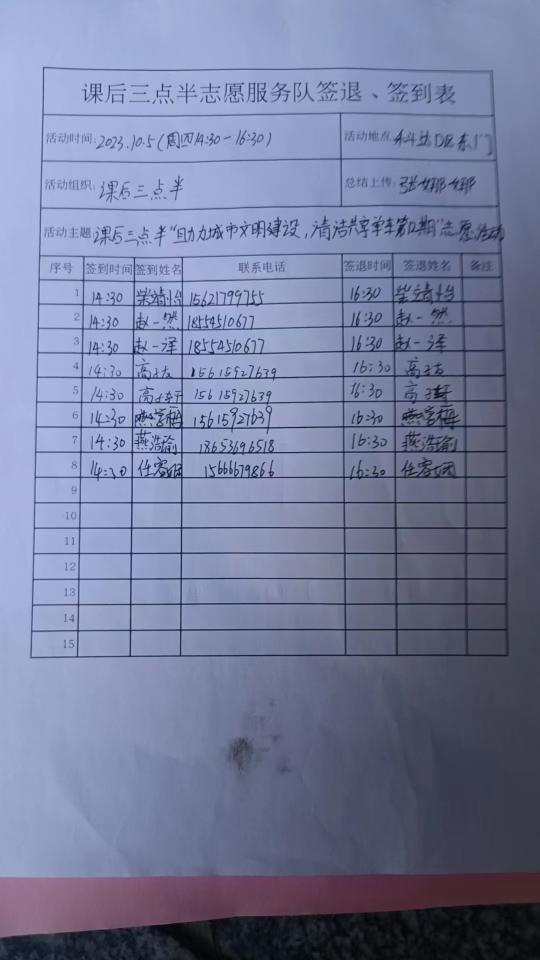 课后三点半志愿服务队签退、签到表
活动时间: 2023.10.5(周四14:30-16:30) 活动地点: 科达D区东门
活动组织: 课后三点半 总结上传: 张娜娜
活动主题: 课后三点半"助力城市文明建设,清洁共享单车第12期"志愿活动
序号 签到时间 签到姓名 联系电话 签退时间 签退姓名 备注
1 14:30 柴靖怡 15621799755 16:30 柴靖怡
2 14:30 赵一然 18554510677 16:30 赵一然
3 14:30 赵一泽 18554510677 16:30 赵一泽
4 14:30 高子友 15615927639 16:30 高子友
5 14:30 高子轩 15615927639 16:30 高子轩
6 14:30 15615927639 16:30
7 14:30 燕浩瑜 18653696518 16:30 燕浩瑜
8 14:30 任容娴 15666679866 16:30 任容娴
9
10
11
12
13
14
15